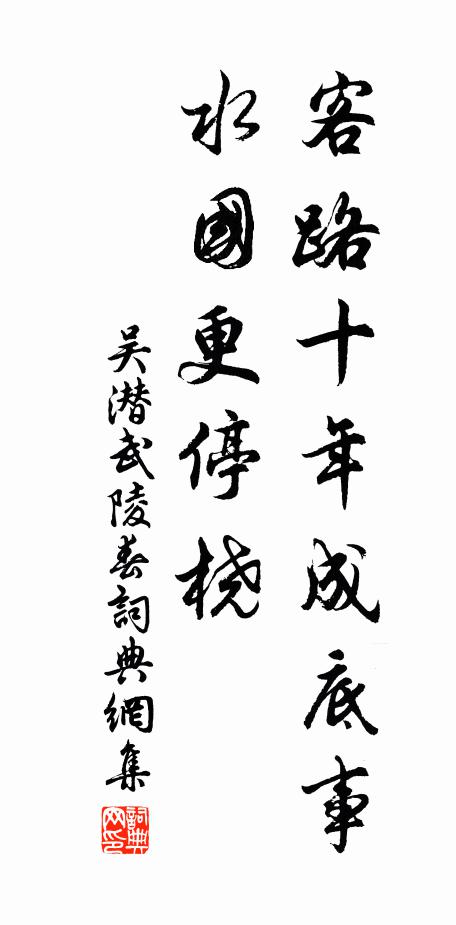 客路十年成底事
水國更停桡
吴潜武陵春詞典網集
詞典網印